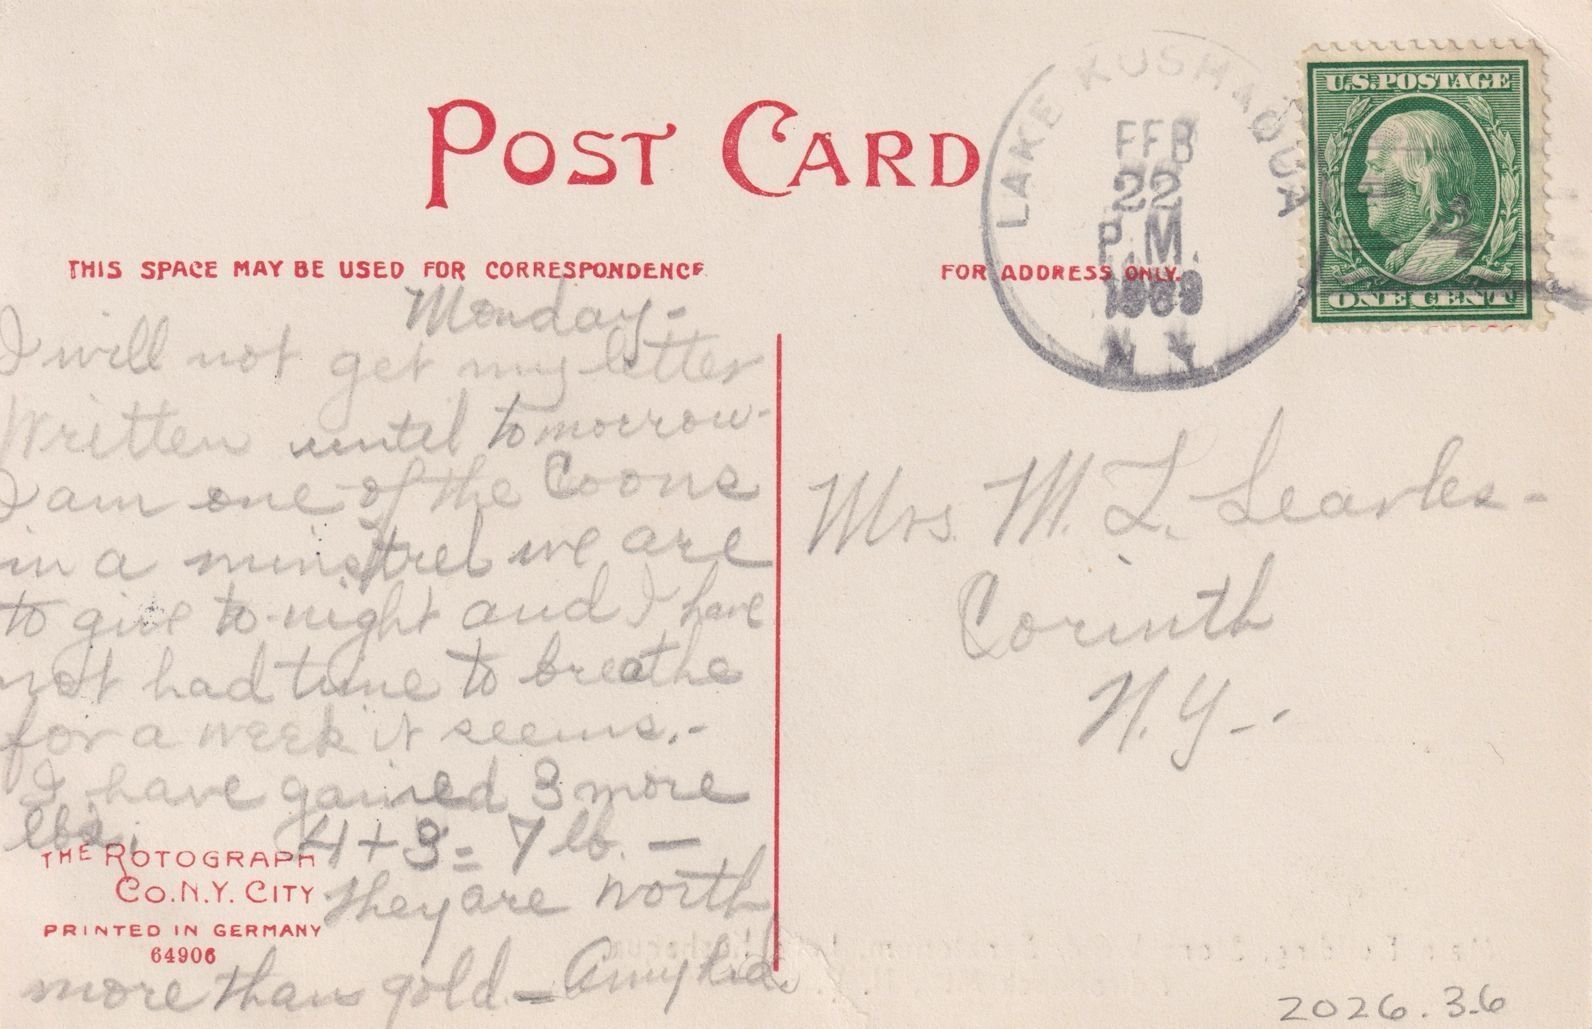 POST CARD
THIS SPACE MAY BE USED FOR CORRESPONDENCE
FOR ADDRESS ONLY.
LAKE KUSHAQUA
FEB
22
P.M.
1909
N.Y.
U.S. POSTAGE
ONE CENT
Monday-
I will not get my letter
Written until tomorrow-
I am one of the Coons
in a minstrel we are
to give to-night and I have
not had time to breathe
for a week it seems.-
I have gained 3 more
lbs. 4 + 3 = 7 lb. -
They are worth
more than gold - Amy
Mrs. M. L. Searles-
Corinth
N.Y-.
THE ROTOGRAPH
CO. N.Y. CITY
PRINTED IN GERMANY
64906
2026.3.6